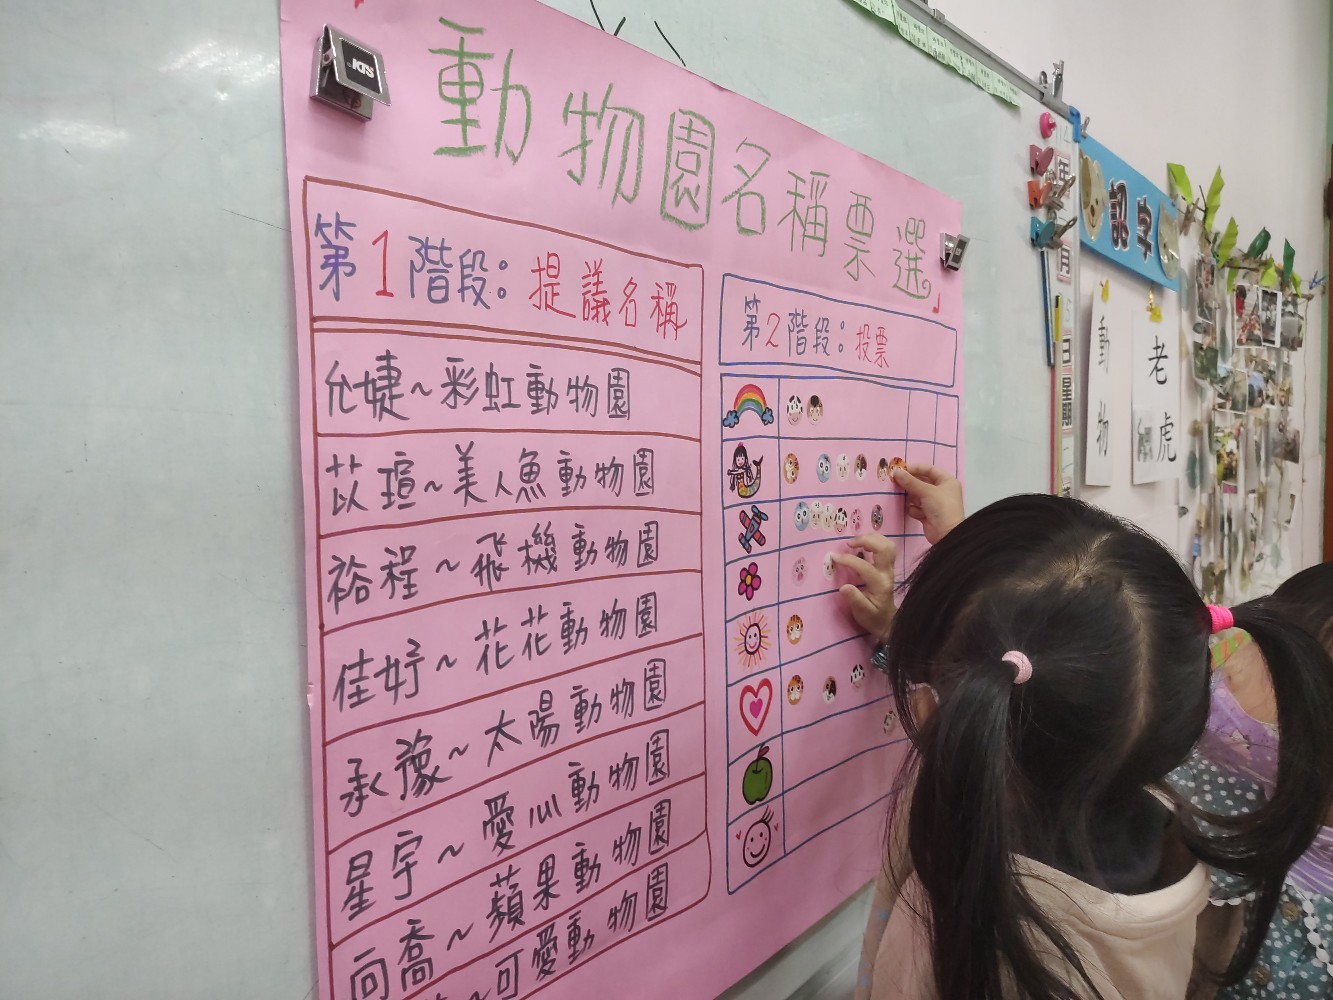 KTS
動物園名稱票選
第1階段：提議名稱
允婕～彩虹動物園
苡瑄～美人魚動物園
裕程～飛機動物園
佳妤～花花動物園
承豫～太陽動物園
星宇～愛心動物園
向喬～蘋果動物園
～可愛動物園
第2階段：投票
識字
動物
老虎
月
日
星期